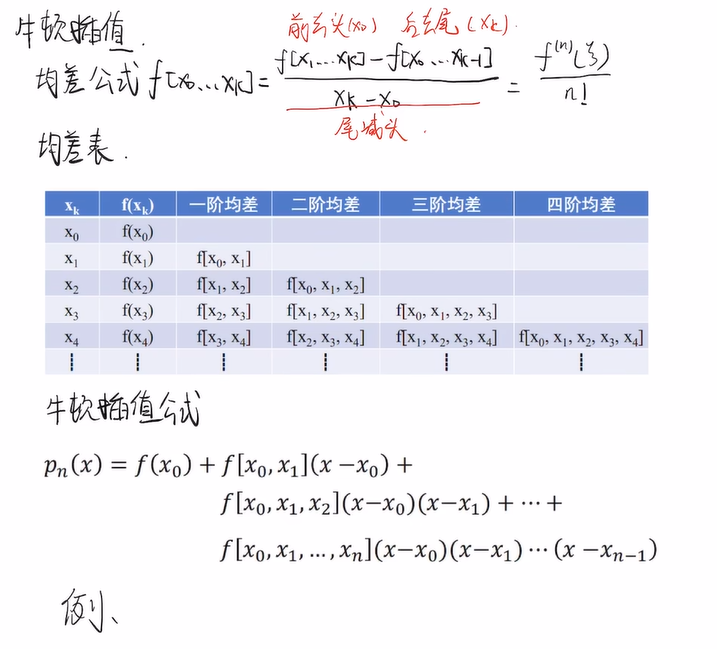 牛顿插值.
前去头(x₀) 后去尾(xₖ).
均差公式 f[x₀…xₖ] = (f[x₁…xₖ] - f[x₀…xₖ₋₁]) / (xₖ - x₀) = f⁽ⁿ⁾(ξ) / n!
尾减头.
均差表.
xₖ f(xₖ) 一阶均差 二阶均差 三阶均差 四阶均差
x₀ f(x₀)
x₁ f(x₁) f[x₀, x₁]
x₂ f(x₂) f[x₁, x₂] f[x₀, x₁, x₂]
x₃ f(x₃) f[x₂, x₃] f[x₁, x₂, x₃] f[x₀, x₁, x₂, x₃]
x₄ f(x₄) f[x₃, x₄] f[x₂, x₃, x₄] f[x₁, x₂, x₃, x₄] f[x₀, x₁, x₂, x₃, x₄]
⋮ ⋮ ⋮ ⋮ ⋮ ⋮
牛顿插值公式
pₙ(x) = f(x₀) + f[x₀, x₁](x − x₀) +
f[x₀, x₁, x₂](x−x₀)(x−x₁) + ⋯ +
f[x₀, x₁, …, xₙ](x−x₀)(x−x₁) ⋯ (x − xₙ₋₁)
例、